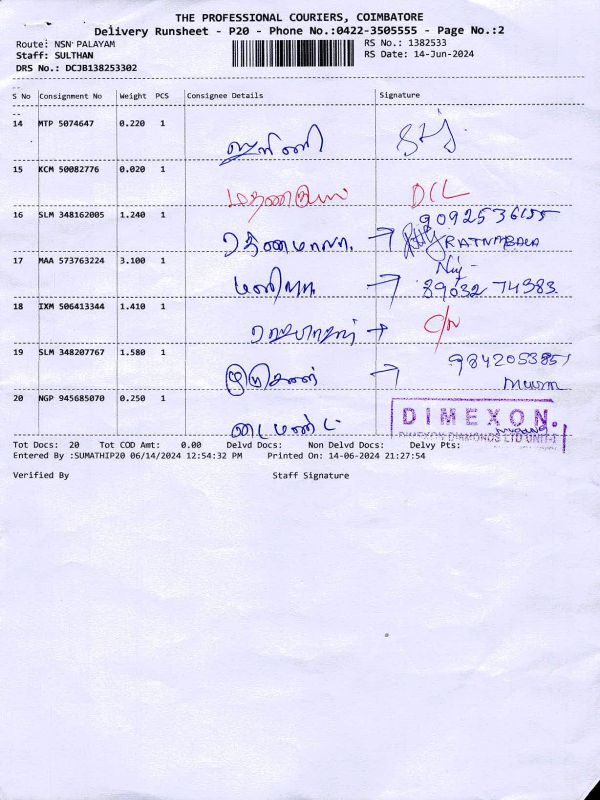 THE PROFESSIONAL COURIERS, COIMBATORE
Delivery Runsheet - P20 - Phone No.:0422-3505555 - Page No.:2
Route: NSN PALAYAM RS No.: 1382533
Staff: SULTHAN RS Date: 14-Jun-2024
DRS No.: DCJB138253302
S No Consignment No Weight PCS Consignee Details Signature
14 MTP 5074647 0.220 1
15 KCM 50082776 0.020 1
DCL
16 SLM 348162005 1.240 1
RATNABALA
17 MAA 573763224 3.100 1
மணி
89032 74383
18 IXM 506413344 1.410 1
19 SLM 348207767 1.580 1
20 NGP 945685070 0.250 1
DIMEXON
DIMEXON DIAMONDS LTD UNIT-1
டைமண்ட்
Tot Docs: 20 Tot COD Amt: 0.00 Delvd Docs: Non Delvd Docs: Delvy Pts:
Entered By :SUMATHIP20 06/14/2024 12:54:32 PM Printed On: 14-06-2024 21:27:54
Verified By Staff Signature